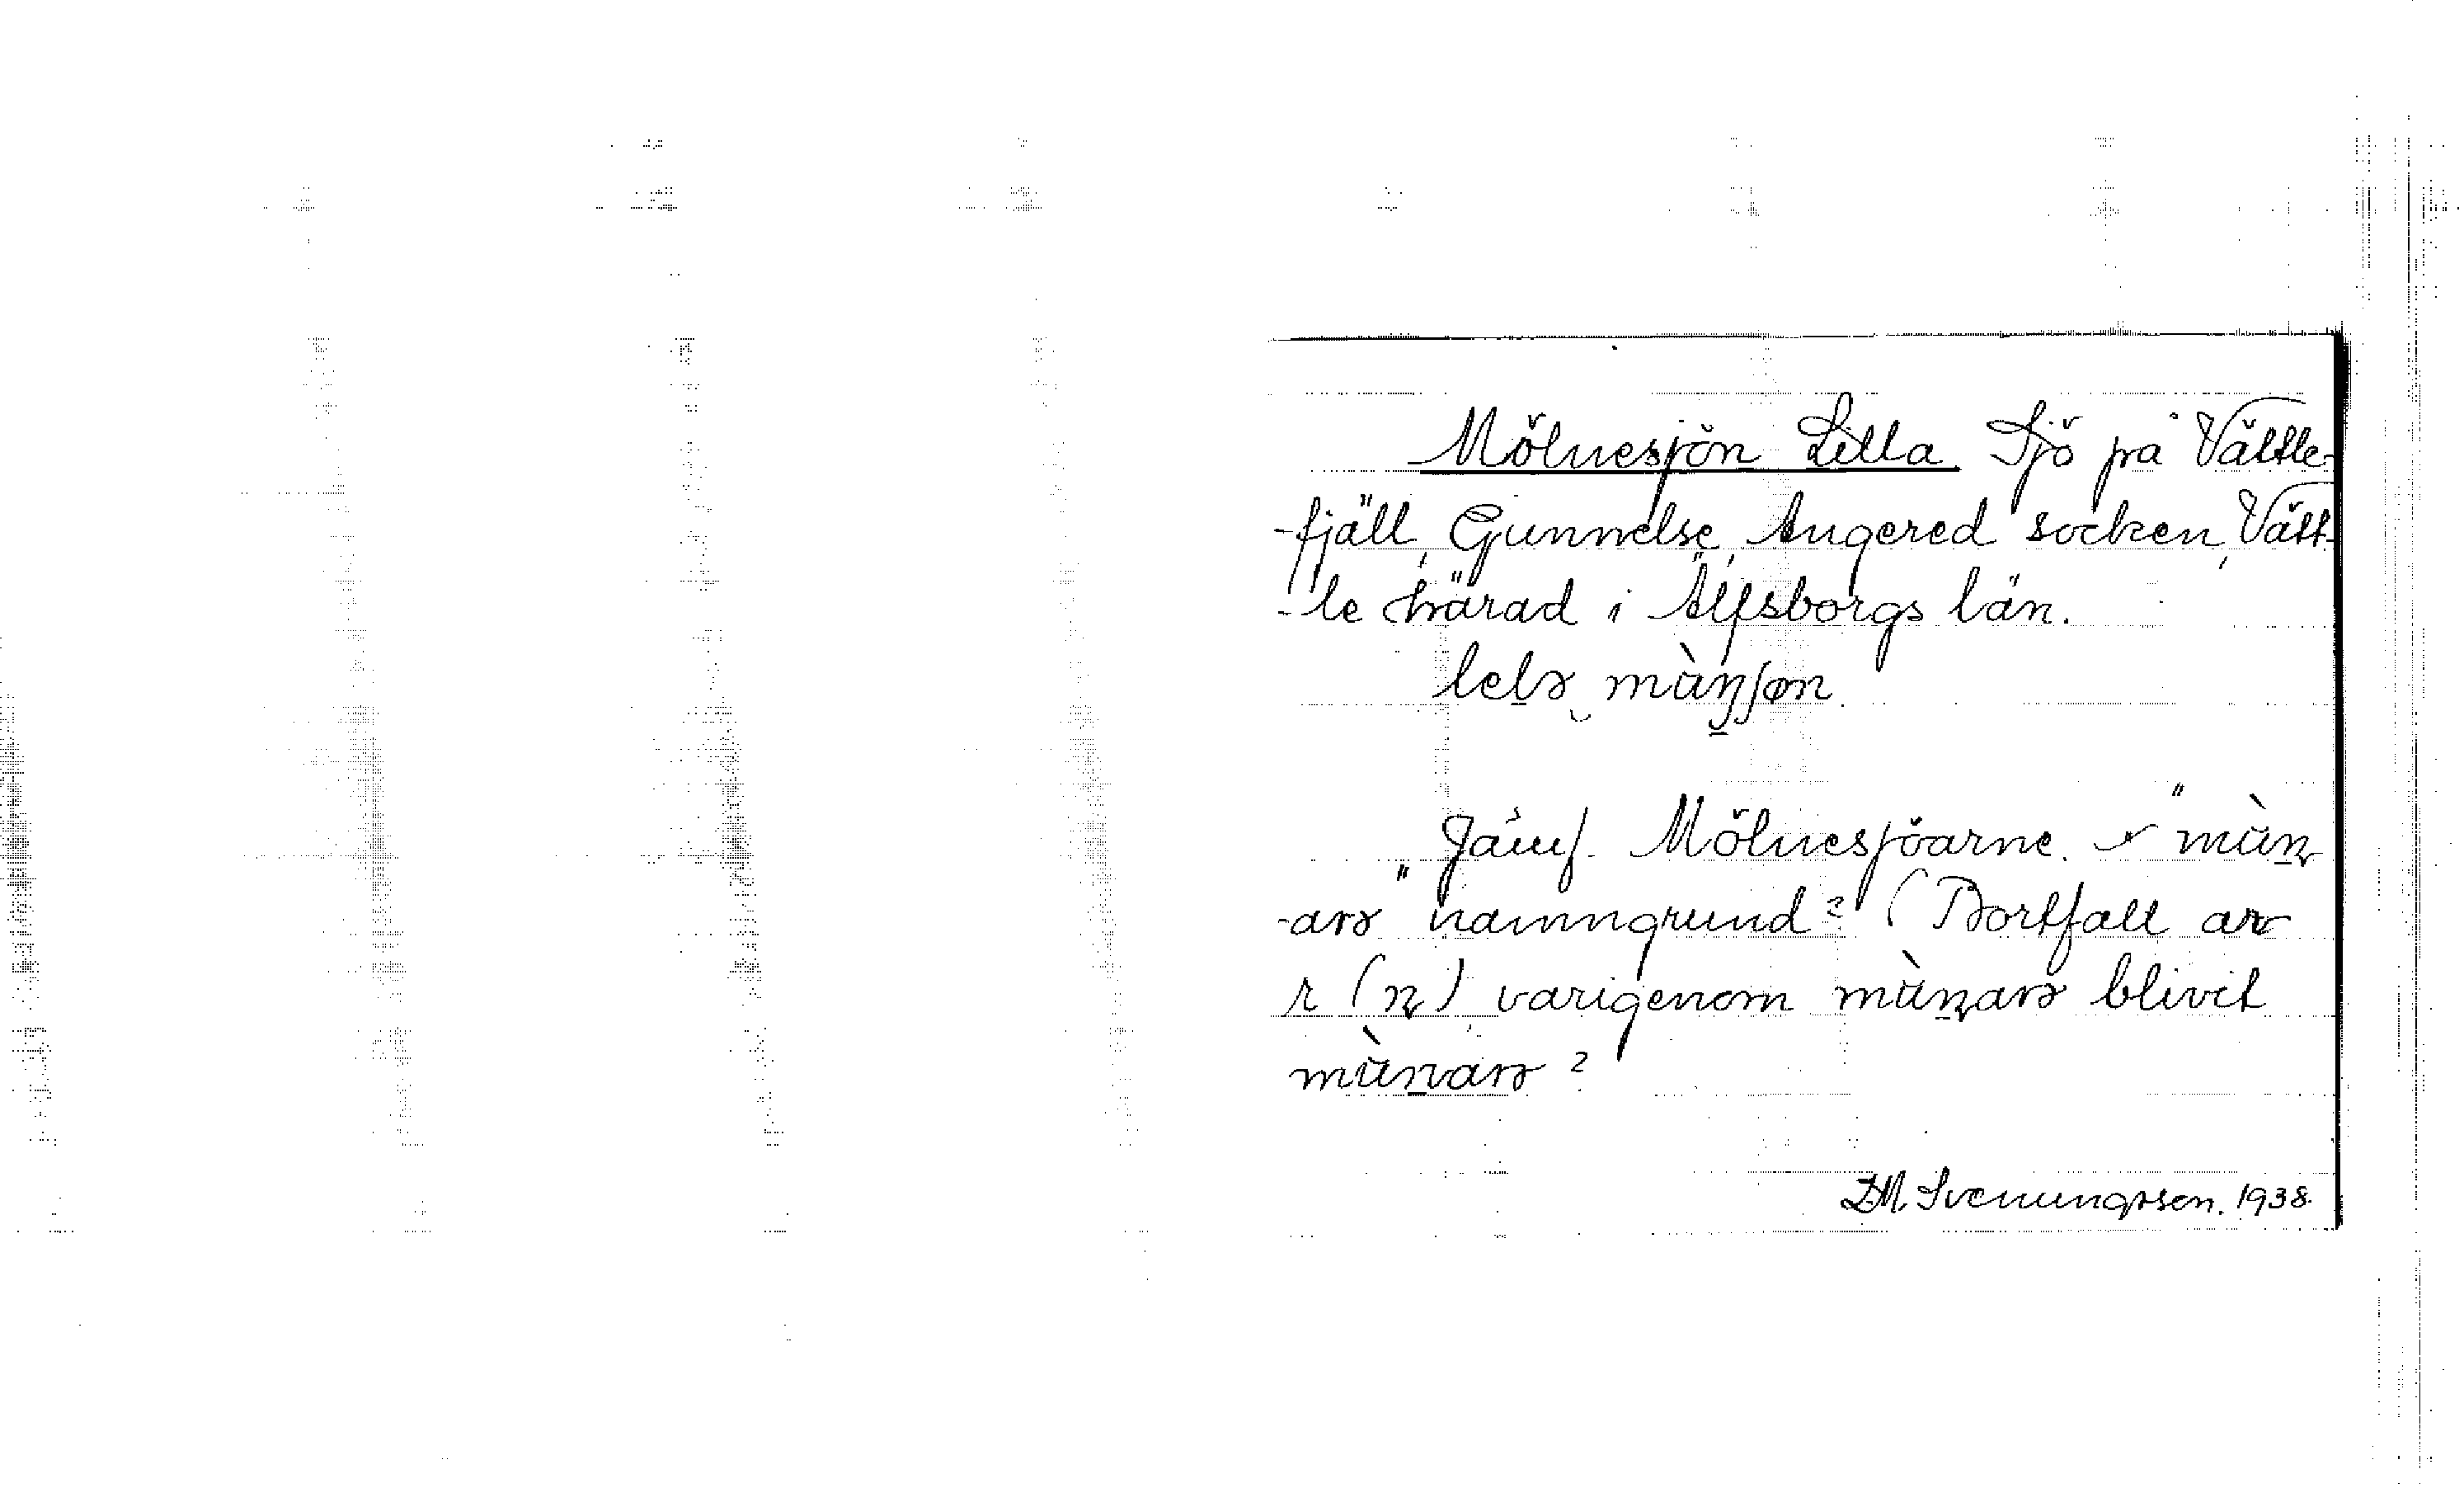 Mölnesjön Lilla. Sjö på Vättle-
-fjäll, Gunnelse, Angered socken, Vätt-
-le härad i Älfsborgs län.
lelə mùnʃøn.
Jämf. Mölnesjöarne. "mùn
-arə" namngrund? (Bortfall av
r (n) varigenom mùnarə blivit
mùnarə?
D.M. Svenungsson. 1938.